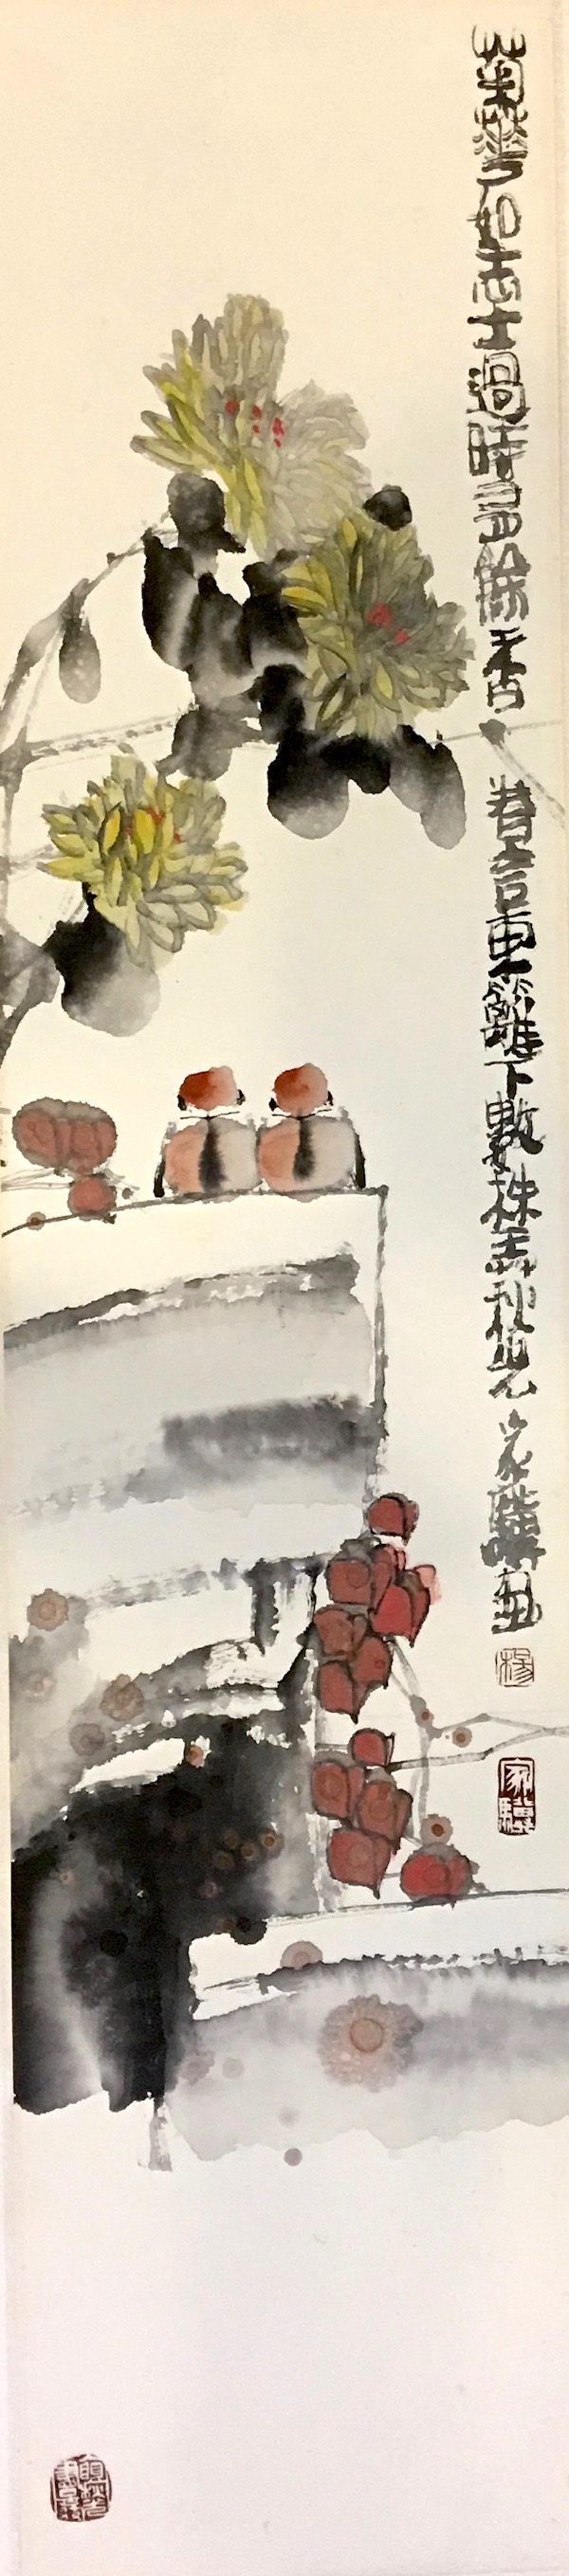 菊華如志士過時有餘香 眷言東籬下數株弄秋光 家驥畫
楊
家驥